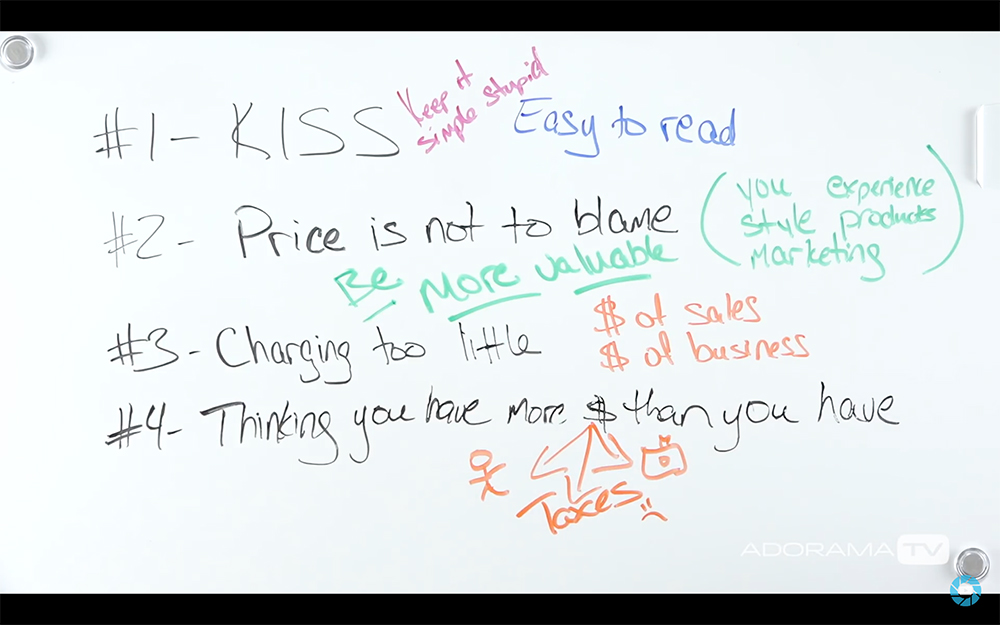 #1- KISS Keep it simple stupid Easy to read
#2- Price is not to blame
(you experience
style products
Marketing)
Be More valuable
#3- Charging too little
$ of sales
$ of business
#4- Thinking you have more $ than you have
Taxes
ADORAMA TV